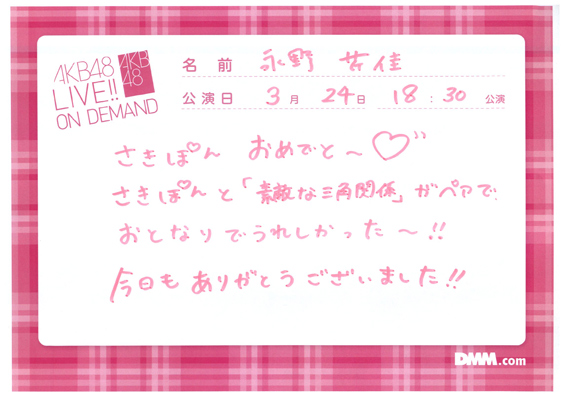 AKB48
LIVE!!
ON DEMAND
AKB
48
名前 永野芹佳
公演日 3月 24日 18:30 公演
さきぽん おめでと〜♡
さきぽんと「素敵な三角関係」がペアで
おとなりでうれしかった〜!!
今日もありがとうございました!!
DMM.com